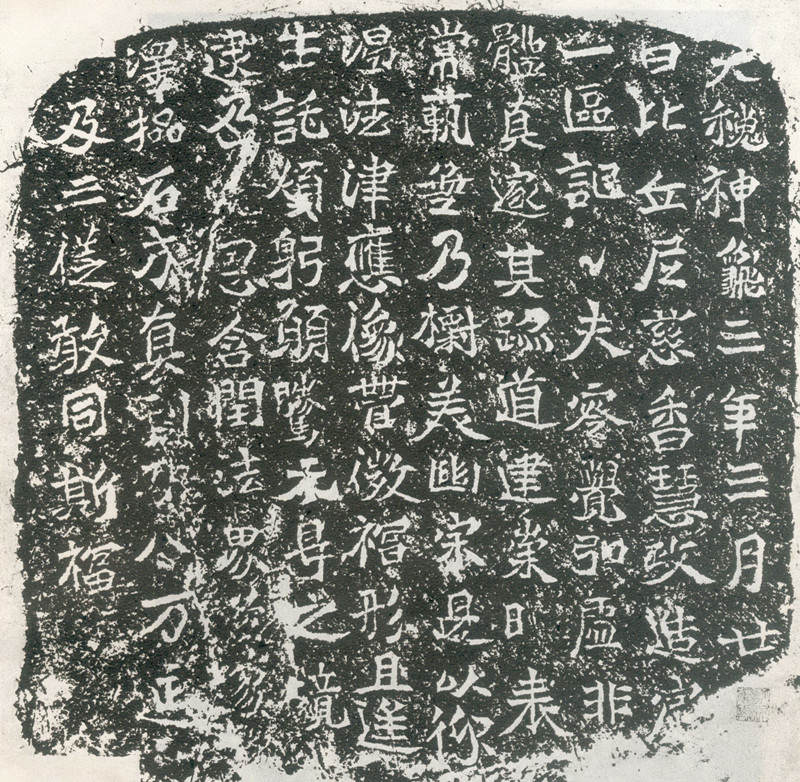 大魏神龜三年三月廿
日比丘尼慈香慧政造窟
一區記〻夫零覺弘虛非
體真邃其跡道建崇日表
常軌無乃標美幽宗是以仰
渴法津應像營微福形且逢
生託煩躬願騰无㝵之境
逮及恩含潤法界
澤石成真刊功八万延
及三從敢同斯福